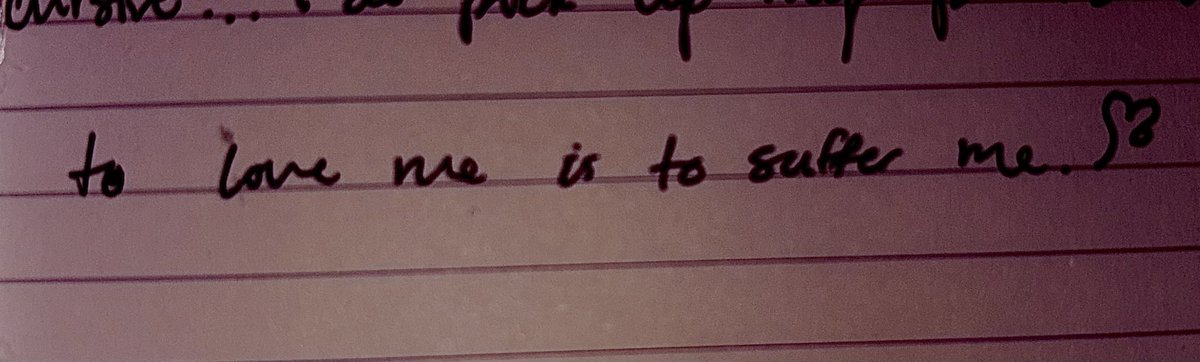 cursive... I do pick up my
to love me is to suffer me.